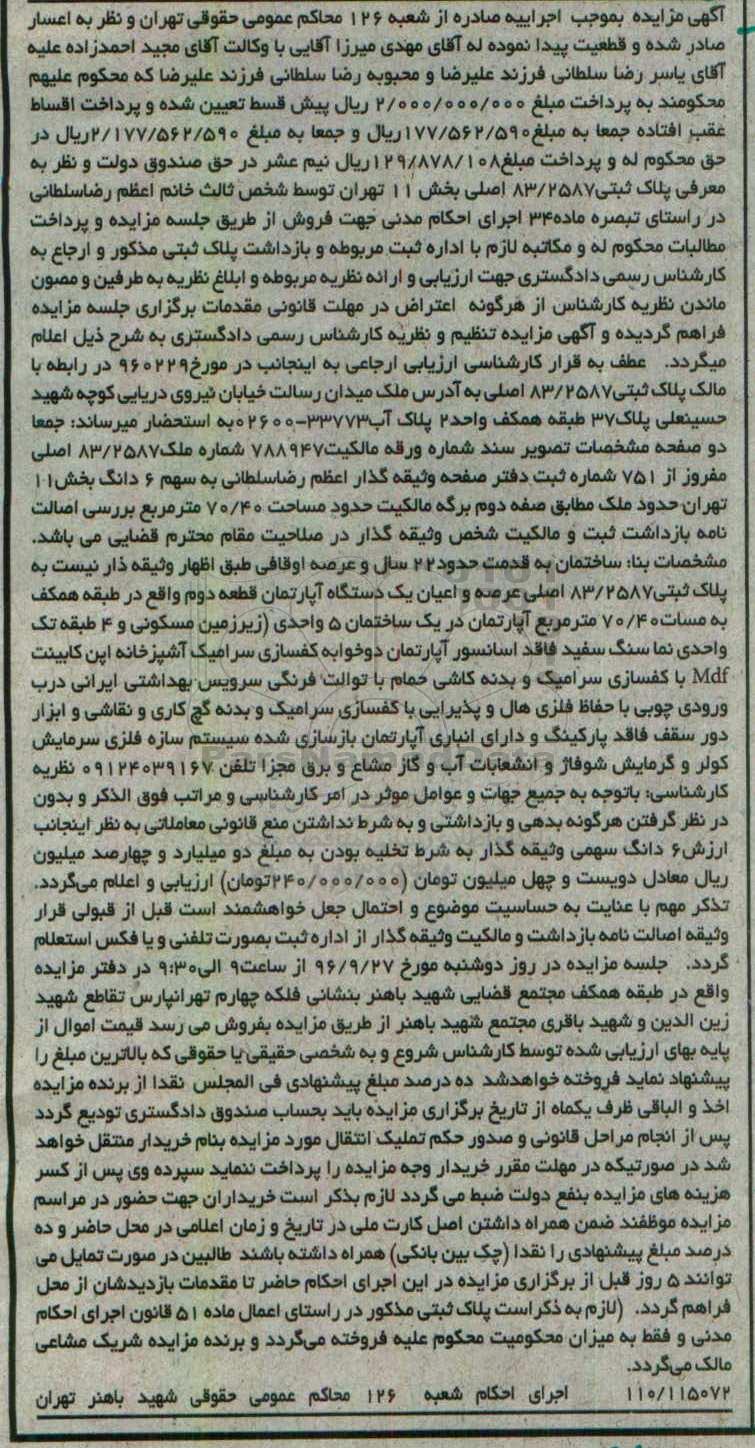 آگهی مزایده بموجب اجراییه صادره از شعبه ۱۲۶ محاکم عمومی حقوقی تهران و نظر به اعسار
صادر شده و قطعیت پیدا نموده له آقای مهدی میرزا آقایی با وکالت آقای مجید احمدزاده علیه
آقای یاسر رضا سلطانی فرزند علیرضا و محبوبه رضا سلطانی فرزند علیرضا که محکوم علیهم
محکومند به پرداخت مبلغ ۲/۰۰۰/۰۰۰/۰۰۰ ریال پیش قسط تعیین شده و پرداخت اقساط
عقب افتاده جمعا به مبلغ۱۷۷/۵۶۲/۵۹۰ریال و جمعا به مبلغ ۲/۱۷۷/۵۶۲/۵۹۰ریال در
حق محکوم له و پرداخت مبلغ۱۲۹/۸۷۸/۱۰۸ریال نیم عشر در حق صندوق دولت و نظر به
معرفی پلاک ثبتی۸۳/۲۵۸۷ اصلی بخش ۱۱ تهران توسط شخص ثالث خانم اعظم رضاسلطانی
در راستای تبصره ماده۳۴ اجرای احکام مدنی جهت فروش از طریق جلسه مزایده و پرداخت
مطالبات محکوم له و مکاتبه لازم با اداره ثبت مربوطه و بازداشت پلاک ثبتی مذکور و ارجاع به
کارشناس رسمی دادگستری جهت ارزیابی و ارائه نظریه مربوطه و ابلاغ نظریه به طرفین و مصون
ماندن نظریه کارشناس از هرگونه اعتراض در مهلت قانونی مقدمات برگزاری جلسه مزایده
فراهم گردیده و آگهی مزایده تنظیم و نظریه کارشناس رسمی دادگستری به شرح ذیل اعلام
میگردد. عطف به قرار کارشناسی ارزیابی ارجاعی به اینجانب در مورخ۹۶۰۲۲۹ در رابطه با
مالک پلاک ثبتی۸۳/۲۵۸۷ اصلی به آدرس ملک میدان رسالت خیابان نیروی دریایی کوچه شهید
حسینعلی پلاک۳۷ طبقه همکف واحد۲ پلاک آب۳۳۷۷۳-۰۲۶۰۰به استحضار میرساند: جمعا
دو صفحه مشخصات تصویر سند شماره ورقه مالکیت۷۸۸۹۴۷ شماره ملک۸۳/۲۵۸۷ اصلی
مفروز از ۷۵۱ شماره ثبت دفتر صفحه وثیقه گذار اعظم رضاسلطانی به سهم ۶ دانگ بخش۱۱
تهران حدود ملک مطابق صفه دوم برگه مالکیت حدود مساحت ۷۰/۴۰ مترمربع بررسی اصالت
نامه بازداشت ثبت و مالکیت شخص وثیقه گذار در صلاحیت مقام محترم قضایی می باشد.
مشخصات بنا: ساختمان به قدمت حدود۲۲ سال و عرصه اوقافی طبق اظهار وثیقه ذار نیست به
پلاک ثبتی۸۳/۲۵۸۷ اصلی عرصه و اعیان یک دستگاه آپارتمان قطعه دوم واقع در طبقه همکف
به مسات۷۰/۴۰ مترمربع آپارتمان در یک ساختمان ۵ واحدی (زیرزمین مسکونی و ۴ طبقه تک
واحدی نما سنگ سفید فاقد اسانسور آپارتمان دوخوابه کفسازی سرامیک آشپزخانه اپن کابینت
Mdf با کفسازی سرامیک و بدنه کاشی حمام با توالت فرنگی سرویس بهداشتی ایرانی درب
ورودی چوبی با حفاظ فلزی هال و پذیرایی با کفسازی سرامیک و بدنه گچ کاری و نقاشی و ابزار
دور سقف فاقد پارکینگ و دارای انباری آپارتمان بازسازی شده سیستم سازه فلزی سرمایش
کولر و گرمایش شوفاژ و انشعابات آب و گاز مشاع و برق مجزا تلفن ۰۹۱۲۴۰۳۹۱۶۷ نظریه
کارشناسی: باتوجه به جمیع جهات و عوامل موثر در امر کارشناسی و مراتب فوق الذکر و بدون
در نظر گرفتن هرگونه بدهی و بازداشتی و به شرط نداشتن منع قانونی معاملاتی به نظر اینجانب
ارزش۶ دانگ سهمی وثیقه گذار به شرط تخلیه بودن به مبلغ دو میلیارد و چهارصد میلیون
ریال معادل دویست و چهل میلیون تومان (۲۴۰/۰۰۰/۰۰۰تومان) ارزیابی و اعلام می‌گردد.
تذکر مهم با عنایت به حساسیت موضوع و احتمال جعل خواهشمند است قبل از قبولی قرار
وثیقه اصالت نامه بازداشت و مالکیت وثیقه گذار از اداره ثبت بصورت تلفنی و یا فکس استعلام
گردد. جلسه مزایده در روز دوشنبه مورخ ۹۶/۹/۲۷ از ساعت۹ الی۹:۳۰ در دفتر مزایده
واقع در طبقه همکف مجتمع قضایی شهید باهنر بنشانی فلکه چهارم تهرانپارس تقاطع شهید
زین الدین و شهید باقری مجتمع شهید باهنر از طریق مزایده بفروش می رسد قیمت اموال از
پایه بهای ارزیابی شده توسط کارشناس شروع و به شخصی حقیقی یا حقوقی که بالاترین مبلغ را
پیشنهاد نماید فروخته خواهدشد ده درصد مبلغ پیشنهادی فی المجلس نقدا از برنده مزایده
اخذ و الباقی ظرف یکماه از تاریخ برگزاری مزایده باید بحساب صندوق دادگستری تودیع گردد
پس از انجام مراحل قانونی و صدور حکم تملیک انتقال مورد مزایده بنام خریدار منتقل خواهد
شد در صورتیکه در مهلت مقرر خریدار وجه مزایده را پرداخت ننماید سپرده وی پس از کسر
هزینه های مزایده بنفع دولت ضبط می گردد لازم بذکر است خریداران جهت حضور در مراسم
مزایده موظفند ضمن همراه داشتن اصل کارت ملی در تاریخ و زمان اعلامی در محل حاضر و ده
درصد مبلغ پیشنهادی را نقدا (چک بین بانکی) همراه داشته باشند طالبین در صورت تمایل می
توانند ۵ روز قبل از برگزاری مزایده در این اجرای احکام حاضر تا مقدمات بازدیدشان از محل
فراهم گردد. (لازم به ذکر است پلاک ثبتی مذکور در راستای اعمال ماده ۵۱ قانون اجرای احکام
مدنی و فقط به میزان محکومیت محکوم علیه فروخته می‌گردد و برنده مزایده شریک مشاعی
مالک می‌گردد.
۱۱۰/۱۱۵۰۷۲ اجرای احکام شعبه ۱۲۶ محاکم عمومی حقوقی شهید باهنر تهران